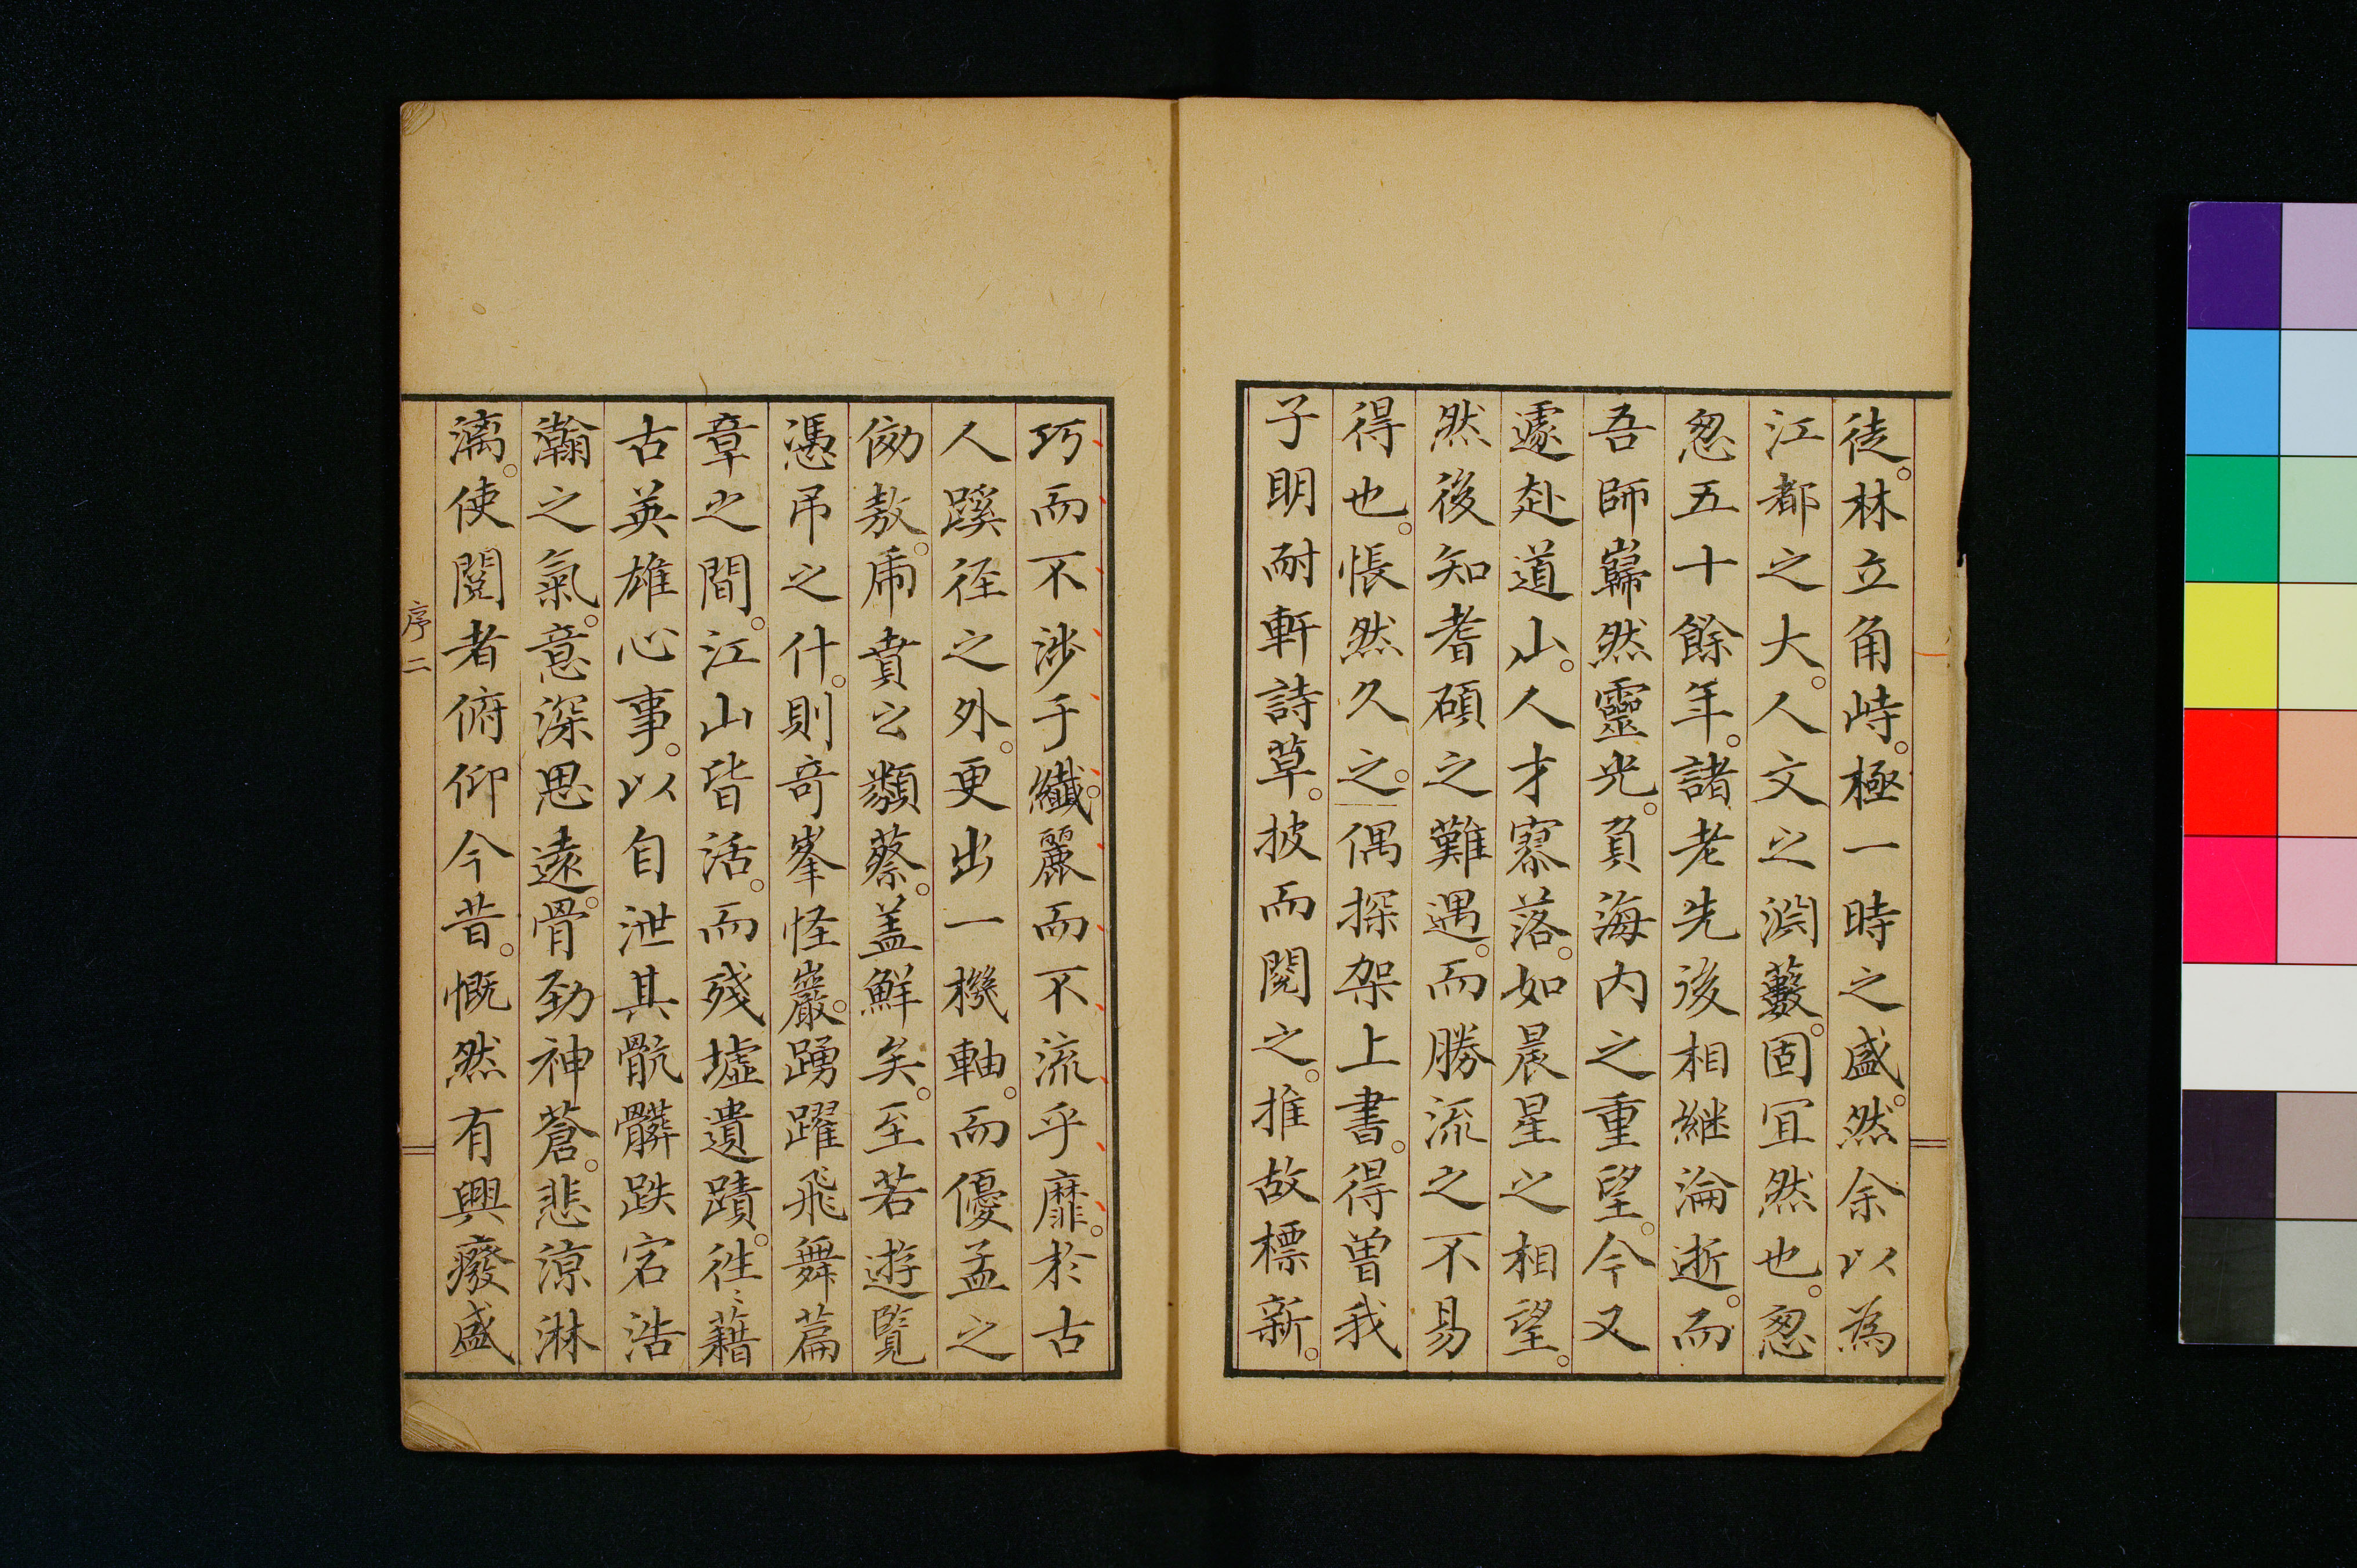 徒。林立角峙。極一時之盛。然余以為
江都之大。人文之淵藪。固冝然也。怱
怱五十餘年。諸老先後相継淪逝。而
吾師巋然靈光。負海內之重望。今又
遽赴道山。人才寥落。如晨星之相望。
然後知耆碩之難遇。而勝流之不易
得也。悵然久之。偶探架上書。得曽我
子明耐軒詩草。披而閱之。推故標新。
巧而不涉于纖麗而不流乎靡。於古
人蹊徑之外。更出一機軸。而優孟之
傚敖。乕賁之類蔡。盖鮮矣。至若遊覧
憑吊之什。則竒峯怪巖。踴躍飛舞篇
章之間。江山皆活。而殘墟遺蹟。徃〻藉
古英雄心事。以自泄其骯髒跌宕浩
瀚之氣。意深思遠。骨勁神蒼。悲涼淋
漓。使閱者俯仰今昔。慨然有興癈盛
序二